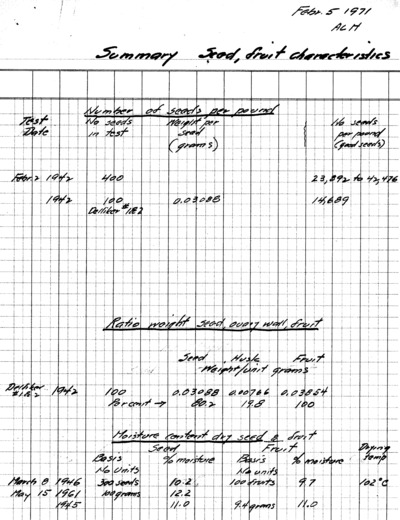 Febr. 5 1971
ACH
Summary Seed, fruit characteristics
Number of seeds per pound
Test Date No seeds in test Weight per seed (grams) No seeds per pound (good seeds)
Febr. 2 1942 400 23,892 to 42,476
1942 100 0.03088 14,689
Delliker #1&2
Ratio weight seed, ovary wall, fruit
Seed Husk Fruit
Weight/unit grams
Delliker #1&2 1942 100 0.03088 0.00766 0.03854
Per cent → 80.2 19.8 100
Moisture content dry seed & fruit
Seed Fruit Drying temp
Basis No units % moisture Basis No units % moisture
March 8 1946 300 seeds 10.2 100 fruits 9.7 102°C
May 15 1961 100 grams 12.2
1945 11.0 9.4 grams 11.0